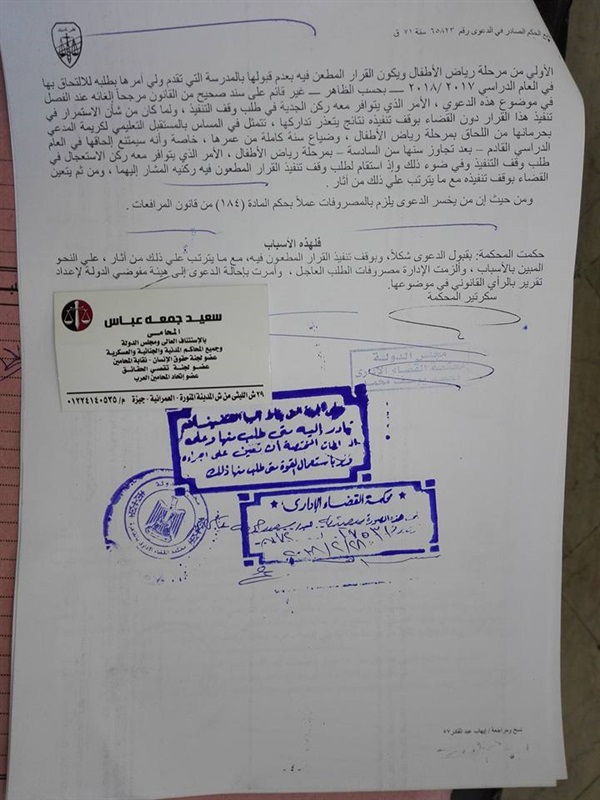 تابع الحكم الصادر في الدعوى رقم ٦٥٨٢٣ سنة ٧١ ق
الأولي من مرحلة رياض الأطفال ويكون القرار المطعن فيه بعدم قبولها بالمدرسة التي تقدم ولي أمرها بطلبه للالتحاق بها
في العام الدراسي ٢٠١٧ /٢٠١٨ ـــ بحسب الظاهر ـــ غير قائم على سند صحيح من القانون مرجحاً إلغائه عند الفصل
في موضوع هذه الدعوي ، الأمر الذي يتوافر معه ركن الجدية في طلب وقف التنفيذ ، ولما كان من شأن الاستمرار في
تنفيذ هذا القرار دون القضاء بوقف تنفيذه نتائج يتعذر تداركها ، تتمثل في المساس بالمستقبل التعليمي لكريمة المدعي
بحرمانها من اللحاق بمرحلة رياض الأطفال ، وضياع سنة كاملة من عمرها ، خاصة وأنه سيمتنع إلحاقها في العام
الدراسي القادم – بعد تجاوز سنها سن السادسة – بمرحلة رياض الأطفال ، الأمر الذي يتوافر معه ركن الاستعجال في
طلب وقف التنفيذ وفي ضوء ذلك وإذ استقام لطلب وقف تنفيذ القرار المطعون فيه ركنيه المشار إليهما ، ومن ثم يتعين
القضاء بوقف تنفيذه مع ما يترتب علي ذلك من أثار .
ومن حيث إن من يخسر الدعوى يلزم بالمصروفات عملاً بحكم المادة (١٨٤) من قانون المرافعات .
فلهذه الاسباب
حكمت المحكمة: بقبول الدعوى شكلاً، وبوقف تنفيذ القرار المطعون فيه، مع ما يترتب علي ذلك من أثار ، علي النحو
المبين بالأسباب ، وألزمت الإدارة مصروفات الطلب العاجل ، وأمرت بإحالة الدعوى إلى هيئة مفوضي الدولة لإعداد
تقرير بالرأي القانوني في موضوعها.
سكرتير المحكمة
سعيد جمعه عباس
المحامى
بالاستئناف العالى ومجلس الدولة
وجميع المحاكم المدنية والجنائية والعسكرية
عضو لجنة حقوق الإنسان - نقابة المحامين
عضو لجنة تقصى الحقائق
عضو إتحاد المحامين العرب
٢٩ ش الليثى من ش المدينة المنورة - العمرانية - جيزة م/ ٠١٢٢٤١٤٠٥٣٥
مجلس الدولة
محكمة القضاء الإدارى
تبادر اليه متى طلب منها وعلى
السلطات المختصة أن تعين على اجراءه
ولو باستعمال القوة متى طلب منها ذلك
محكمة القضاء الإدارى
هذه الصورة
٢٠١٨/٢/٢٨
نسخ ومراجعة / إيهاب عبد القادر
- ٤ -